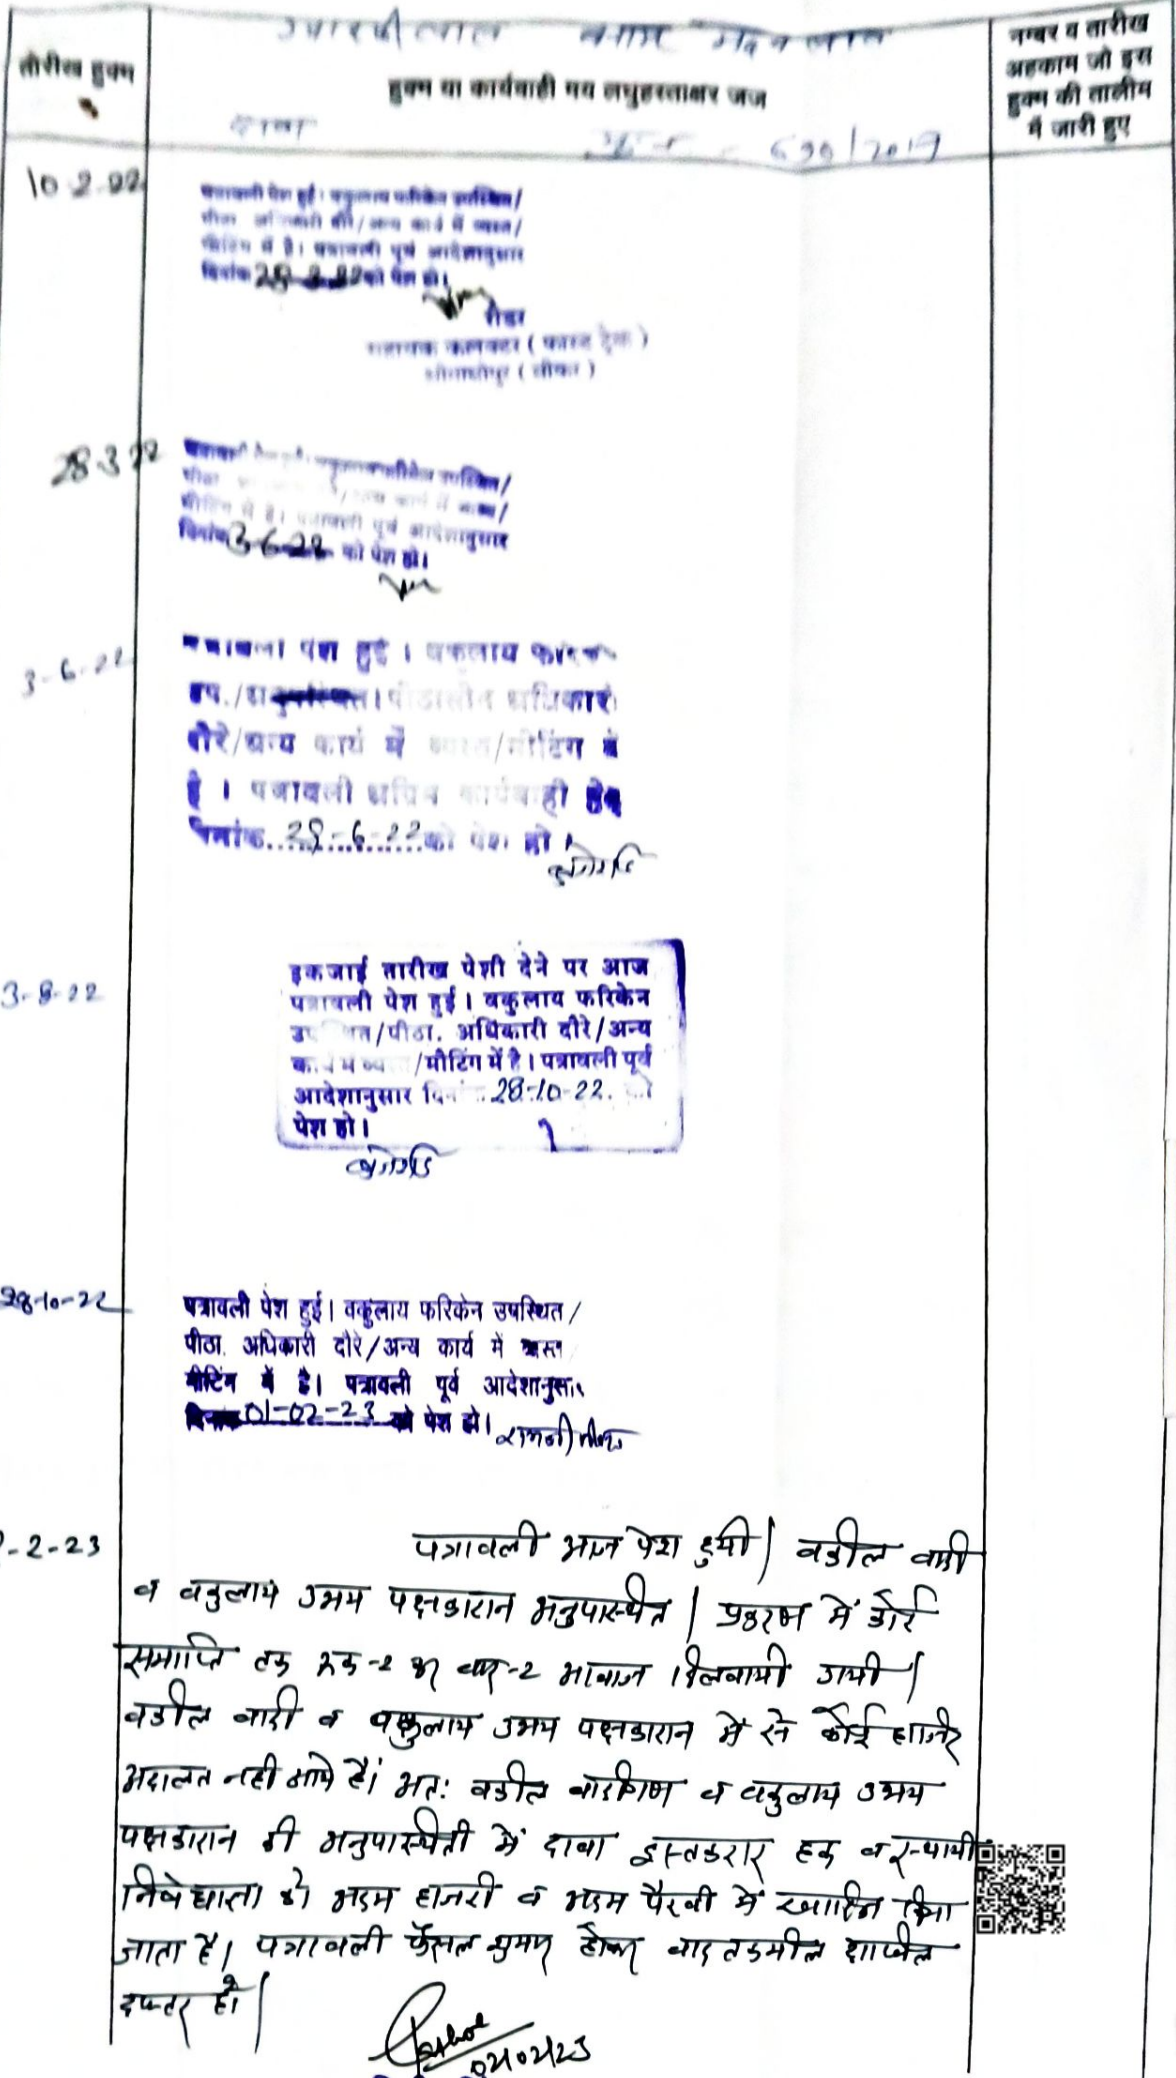 बनाम मदनलाल
तारीख हुक्म
हुक्म या कार्यवाही मय लघुहस्ताक्षर जज
नम्बर व तारीख
अहकाम जो इस
हुक्म की तालीम
में जारी हुए
दावा
/2017
10-2-22
पत्रावली पेश हुई। वकुलाय फरिकेन उपस्थित/
पीठा. अधिकारी दौरे/अन्य कार्य में व्यस्त/
मीटिंग में है। पत्रावली पूर्व आदेशानुसार
दिनांक 28-3-22 को पेश हो।
रीडर
सहायक कलक्टर ( फास्ट ट्रेक )
श्रीमाधोपुर ( सीकर )
28-3-22
पत्रावली पेश हुई। वकुलाय फरिकेन उपस्थित/
पीठा. /अन्य कार्य में व्यस्त/
मीटिंग में है। पत्रावली पूर्व आदेशानुसार
दिनांक 3-6-22 को पेश हो।
3-6-22
पत्रावली पेश हुई । वकलाय
उप./अनुपस्थित। पीठासीन अधिकारी
दौरे/अन्य कार्य में व्यस्त/मीटिंग में
है । पत्रावली अग्रिम कार्यवाही हेतु
दिनांक..28-6-22..को पेश हो ।
3-8-22
इकजाई तारीख पेशी देने पर आज
पत्रावली पेश हुई। वकुलाय फरिकेन
उपस्थित/पीठा. अधिकारी दौरे/अन्य
कार्य में व्यस्त/मीटिंग में है। पत्रावली पूर्व
आदेशानुसार दिनांक 28-10-22. को
पेश हो।
28-10-22
पत्रावली पेश हुई। वकुलाय फरिकेन उपस्थित/
पीठा. अधिकारी दौरे/अन्य कार्य में व्यस्त
मीटिंग में है। पत्रावली पूर्व आदेशानुसार
दिनांक 01-02-23 को पेश हो।
-2-23
पत्रावली आज पेश हुयी। वकील वादी
व वकुलाय उभय पक्षकारान अनुपास्थित। प्रकरण में कोर्ट
समाप्ति तक रूक-2 कर बार-2 आवाज दिलवायी गयी।
वकील वादी व वकुलाय उभय पक्षकारान में से कोई हाजिर
अदालत नही आये हैं। अत: वकील वादीगण व वकुलाय उभय
पक्षकारान की अनुपास्थिती में दावा इस्तकरार हक व स्थायी
निषेधाज्ञा को अदम हाजरी व अदम पैरवी में खारिज किया
जाता है। पत्रावली फैसल शुमार होकर बाद तकमील दाखिल
दफ्तर हो।
02/02/23